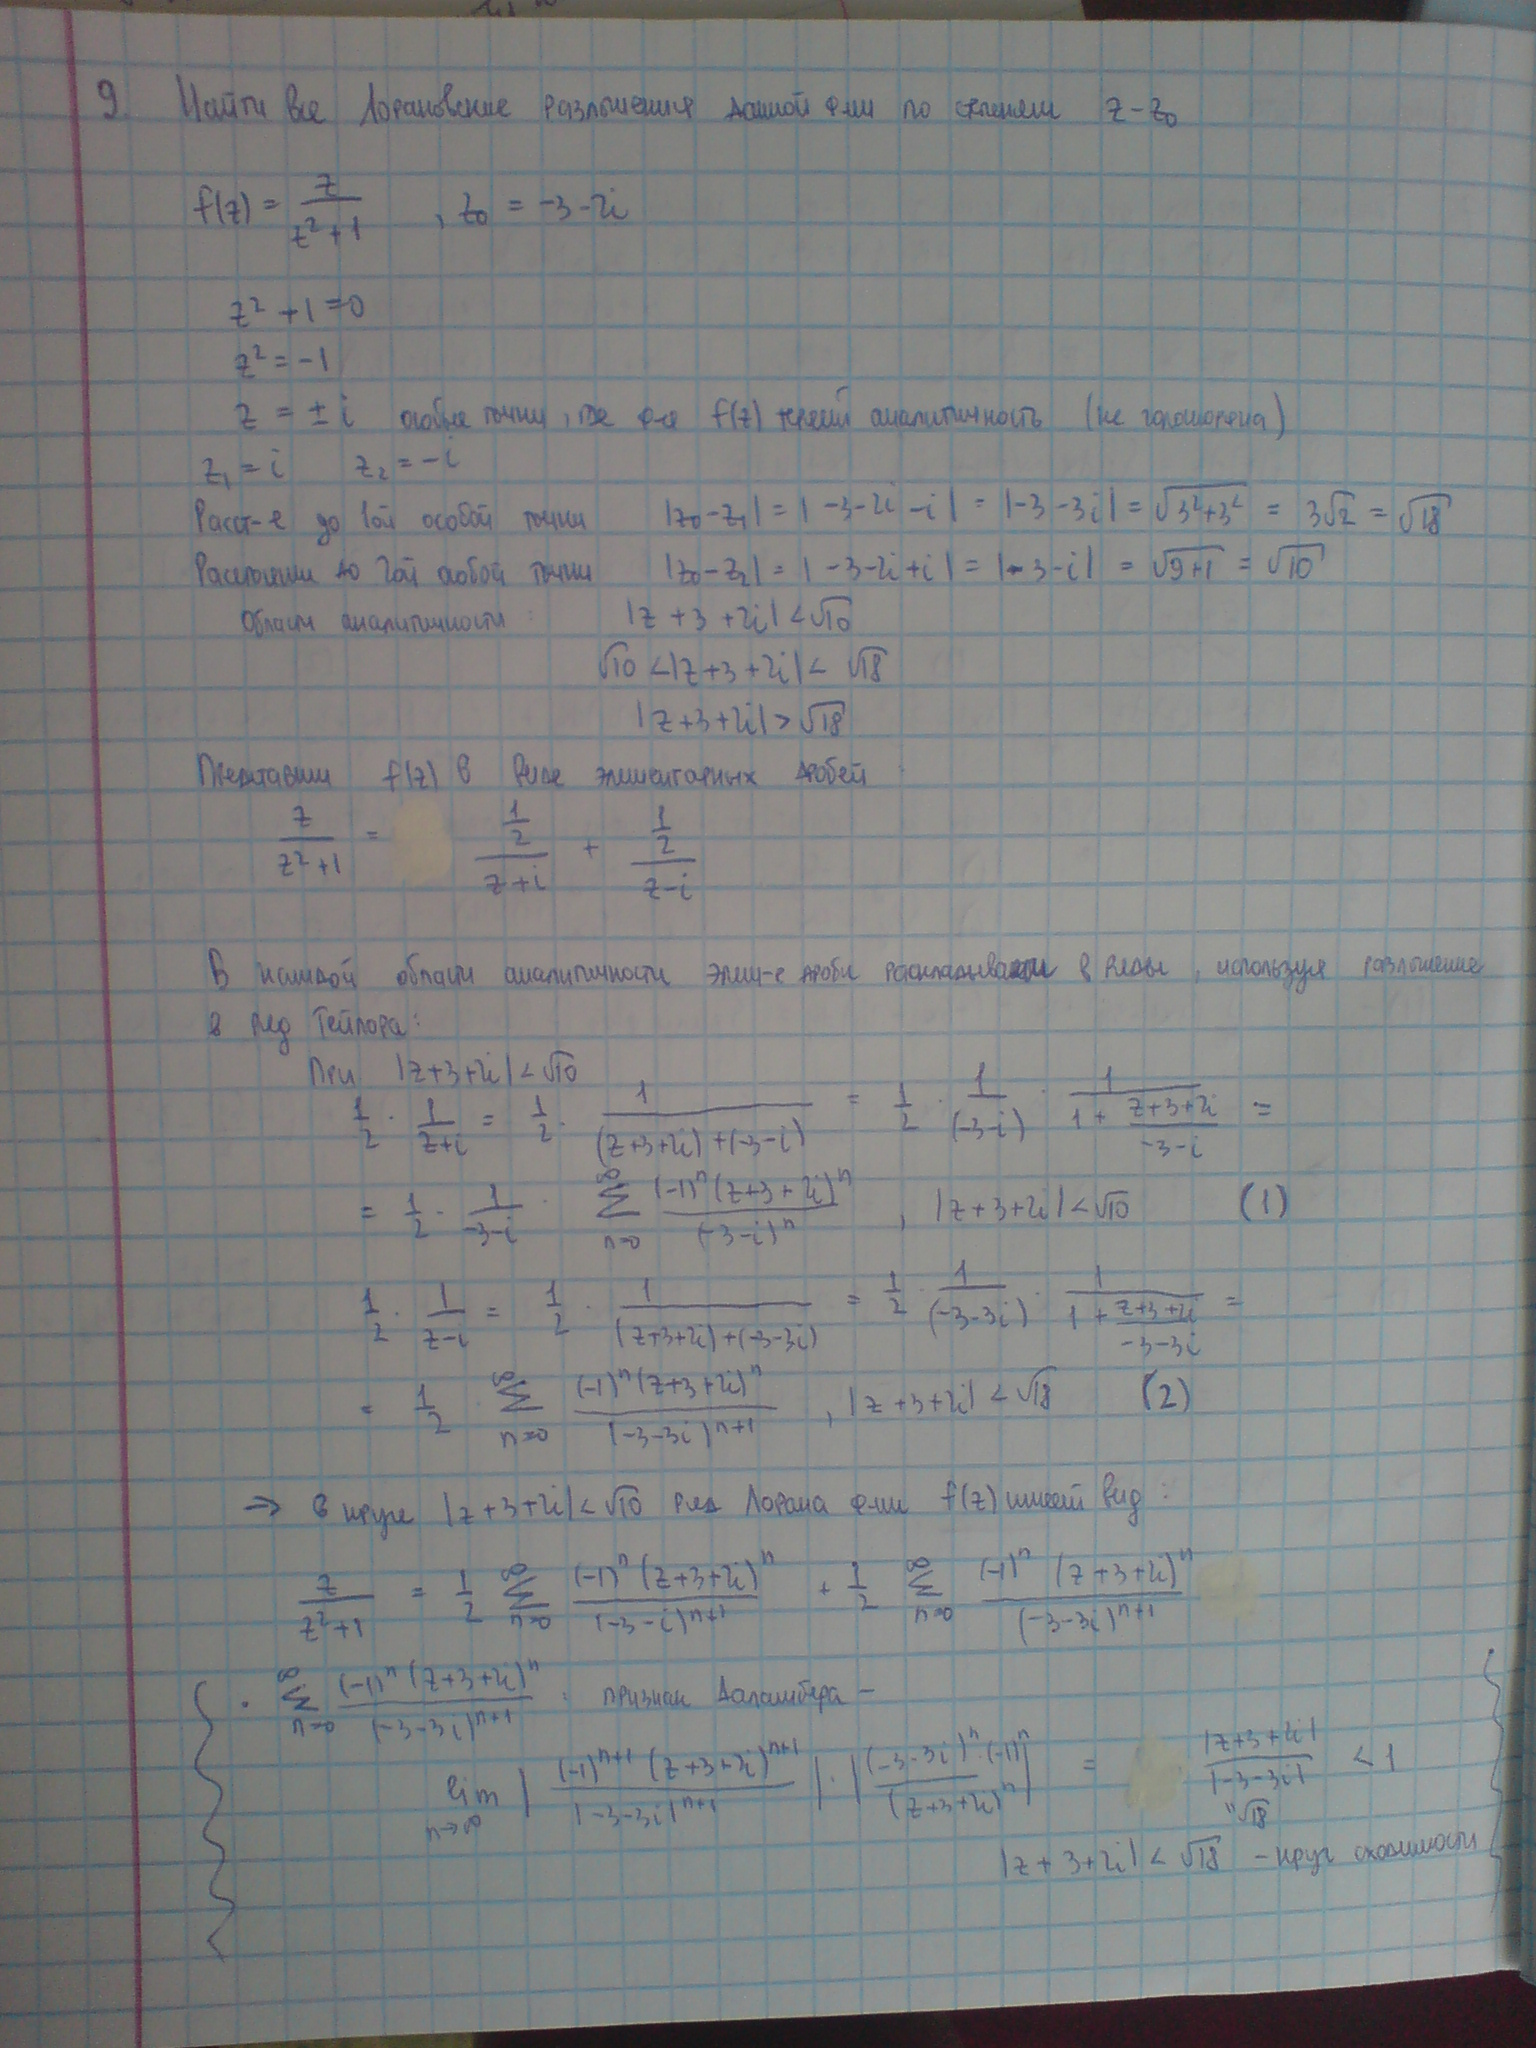 9. Найти все Лорановские разложения данной ф-ии по степеням z - z₀
f(z) = z/(z²+1) , z₀ = -3-2i
z² + 1 = 0
z² = -1
z = ± i особые точки, где ф-я f(z) теряет аналитичность (не голоморфна)
z₁ = i z₂ = -i
Расст-е до 1ой особой точки |z₀-z₁| = |-3-2i-i| = |-3-3i| = √(3²+3²) = 3√2 = √18
Расстояние до 2ой особой точки |z₀-z₂| = |-3-2i+i| = |-3-i| = √(9+1) = √10
Области аналитичности: |z+3+2i| < √10
√10 < |z+3+2i| < √18
|z+3+2i| > √18
Представим f(z) в виде элементарных дробей:
z/(z²+1) = (1/2)/(z+i) + (1/2)/(z-i)
В каждой области аналитичности элем-е дроби раскладываем в ряды, используя разложение
в ряд Тейлора:
При |z+3+2i| < √10
1/2 · 1/(z+i) = 1/2 · 1/((z+3+2i)+(-3-i)) = 1/2 · 1/(-3-i) · 1/(1 + (z+3+2i)/(-3-i)) =
= 1/2 · 1/(-3-i) · ∑_{n=0}^{∞} (-1)ⁿ(z+3+2i)ⁿ/(-3-i)ⁿ , |z+3+2i| < √10 (1)
1/2 · 1/(z-i) = 1/2 · 1/((z+3+2i)+(-3-3i)) = 1/2 · 1/(-3-3i) · 1/(1 + (z+3+2i)/(-3-3i)) =
= 1/2 · ∑_{n=0}^{∞} (-1)ⁿ(z+3+2i)ⁿ/(-3-3i)ⁿ⁺¹ , |z+3+2i| < √18 (2)
⇒ в круге |z+3+2i| < √10 ряд Лорана ф-ии f(z) имеет вид:
z/(z²+1) = 1/2 ∑_{n=0}^{∞} (-1)ⁿ(z+3+2i)ⁿ/(-3-i)ⁿ⁺¹ + 1/2 ∑_{n=0}^{∞} (-1)ⁿ(z+3+2i)ⁿ/(-3-3i)ⁿ⁺¹
· ∑_{n=0}^{∞} (-1)ⁿ(z+3+2i)ⁿ/(-3-3i)ⁿ⁺¹ : признак Даламбера -
lim_{n→∞} |(-1)ⁿ⁺¹(z+3+2i)ⁿ⁺¹/(-3-3i)ⁿ⁺¹| · |(-3-3i)ⁿ·(-1)ⁿ/(z+3+2i)ⁿ| = |z+3+2i|/|-3-3i| < 1
"√18
|z+3+2i| < √18 - круг сходимости